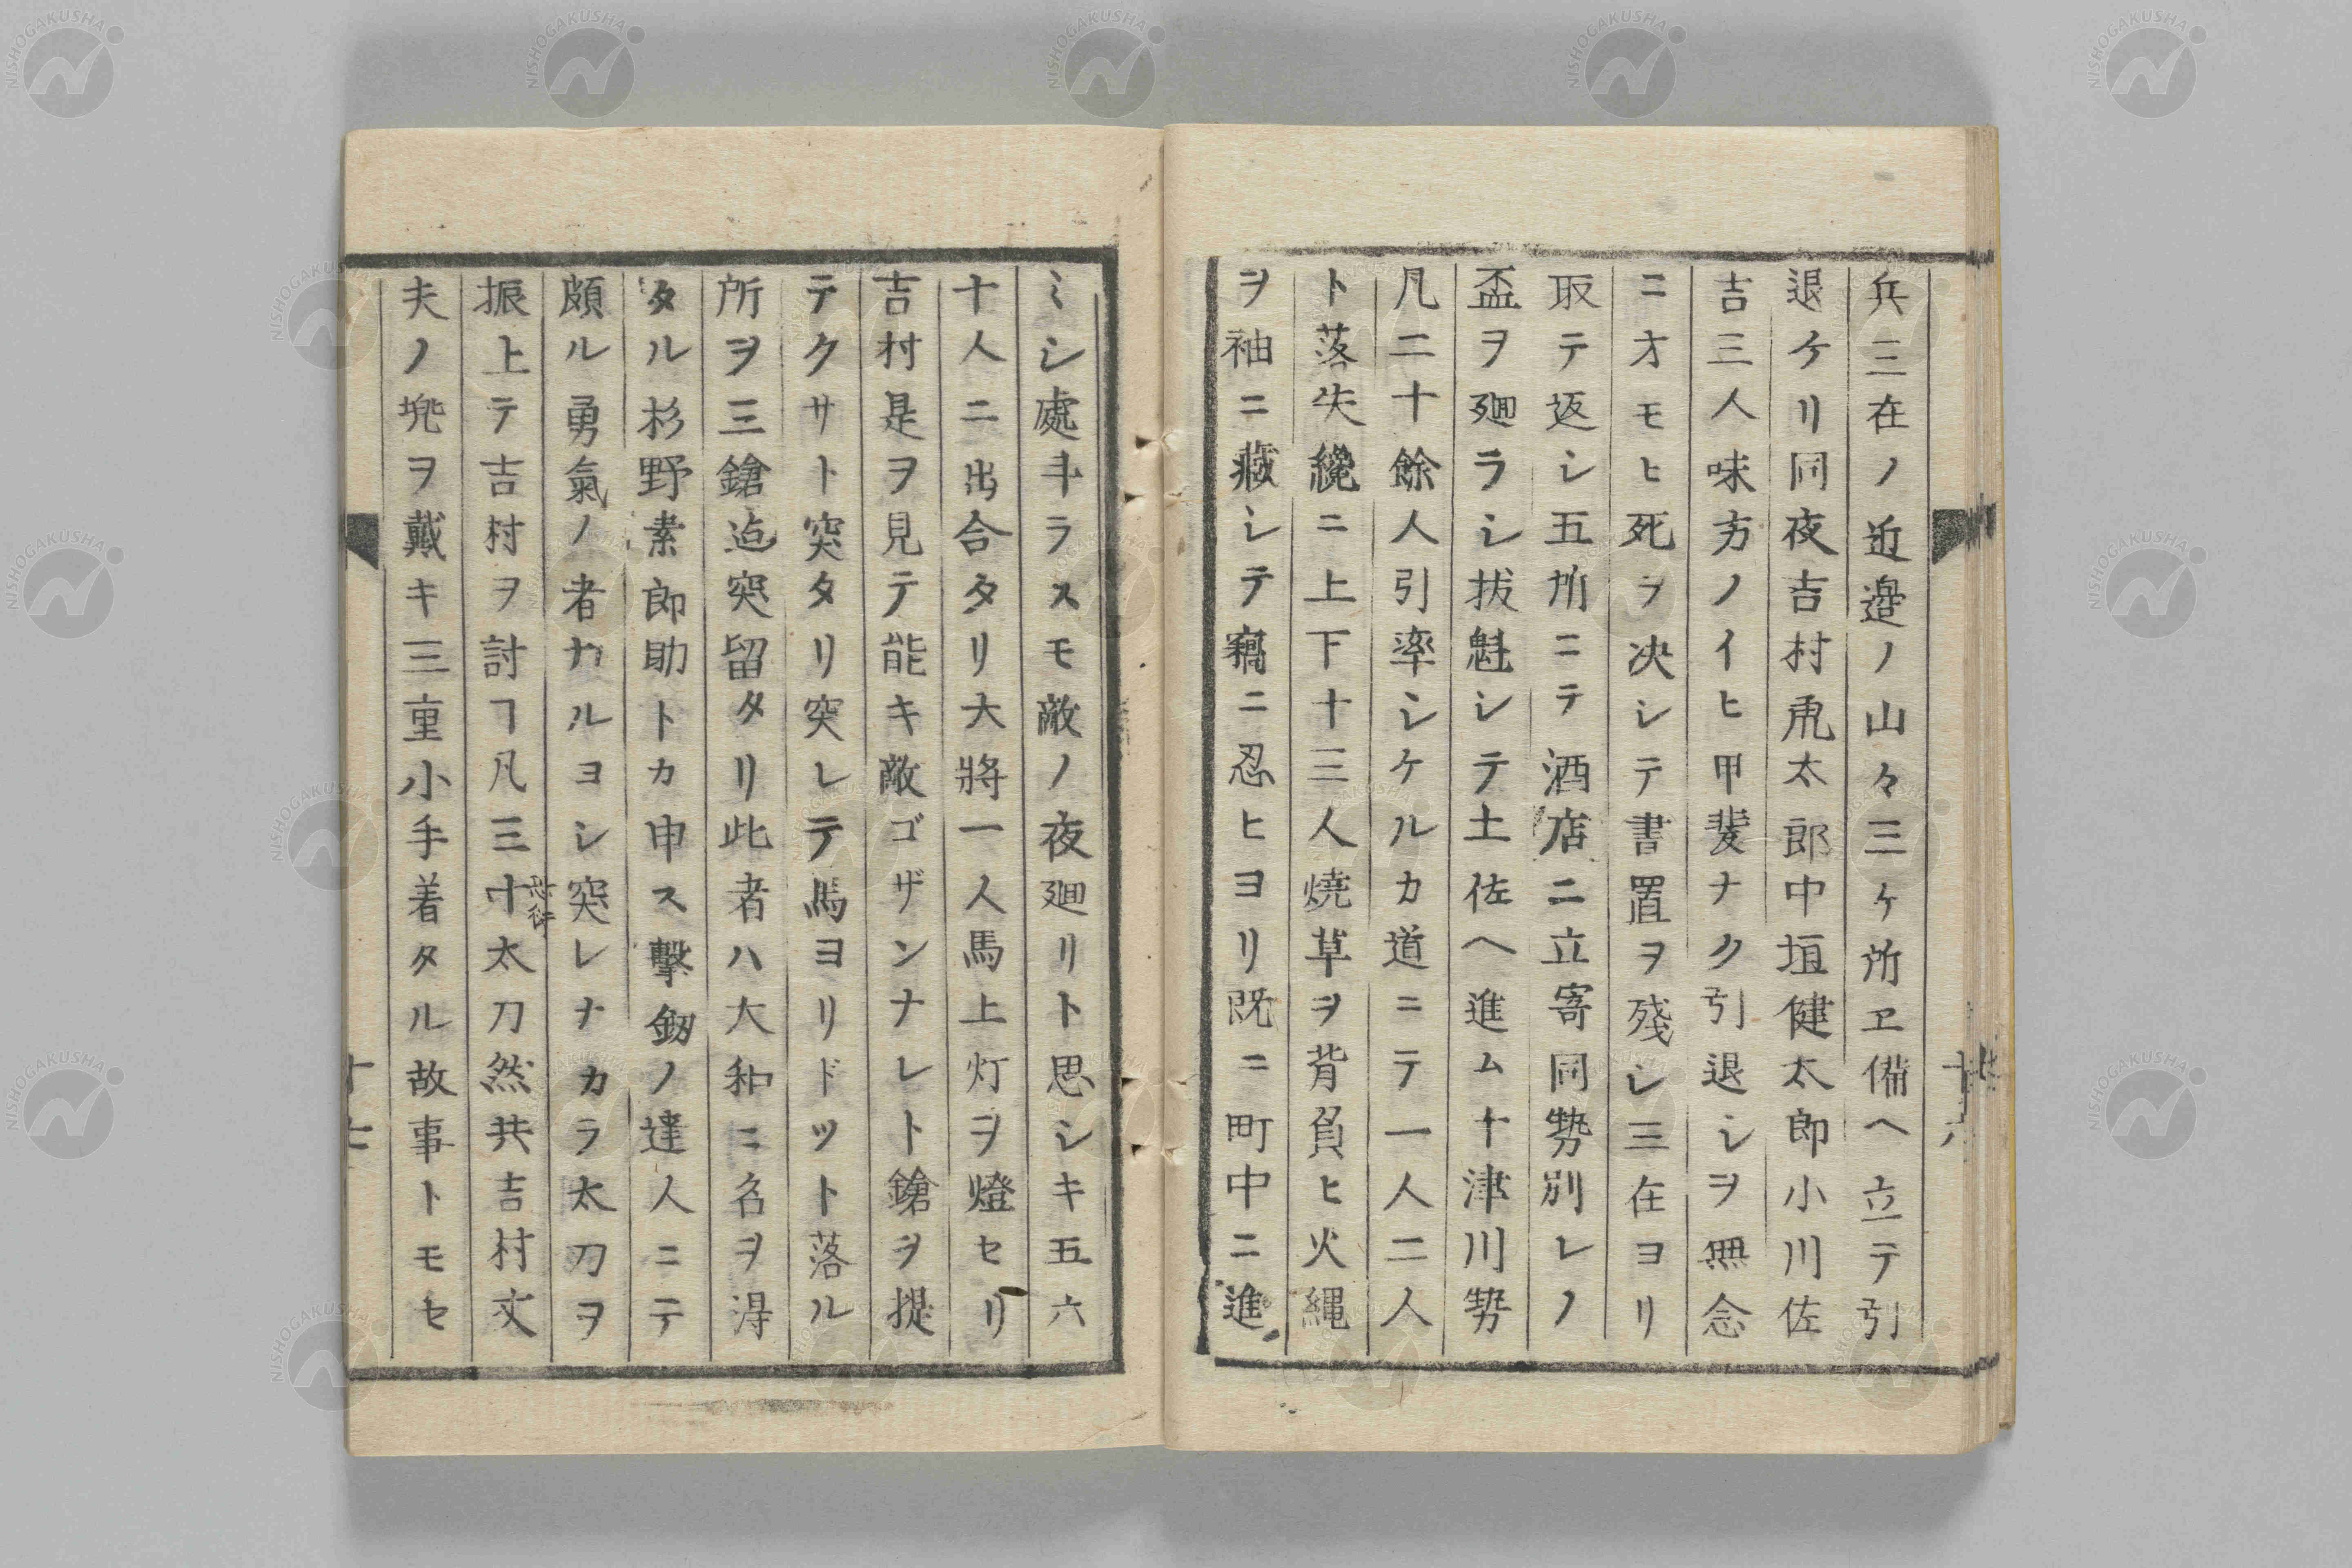 兵三在ノ近邉ノ山々三ヶ所ヱ備ヘ立テ引
退ケリ同夜吉村乕太郎中垣健太郎小川佐
吉三人味方ノイヒ甲斐ナク引退シヲ無念
ニオモヒ死ヲ决シテ書置ヲ殘シ三在ヨリ
取テ返シ五所ニテ酒店ニ立寄同勢別レノ
盃ヲ廻ラシ拔魁シテ土佐ヘ進ム十津川勢
凡二十餘人引率シケルカ道ニテ一人二人
ト落失纔ニ上下十三人焼草ヲ背負ヒ火縄
ヲ袖ニ藏シテ竊ニ忍ヒヨリ既ニ町中ニ進
ミシ處斗ラスモ敵ノ夜廻リト思シキ五六
十人ニ出合タリ大將一人馬上灯ヲ燈セリ
吉村是ヲ見テ能キ敵ゴザンナレト鎗ヲ提
テクサト突タリ突レテ馬ヨリドツト落ル
所ヲ三鎗迠突留タリ此者ハ大和ニ名ヲ得
タル杉野素郎助トカ申ス擊劔ノ達人ニテ
頗ル勇氣ノ者ナルヨシ突レナカラ太刀ヲ
振上テ吉村ヲ討ヿ凡三十太刀然共吉村丈
夫ノ兠ヲ戴キ三重小手着タル故事トモセ
十六
十七
NISHOGAKUSHA